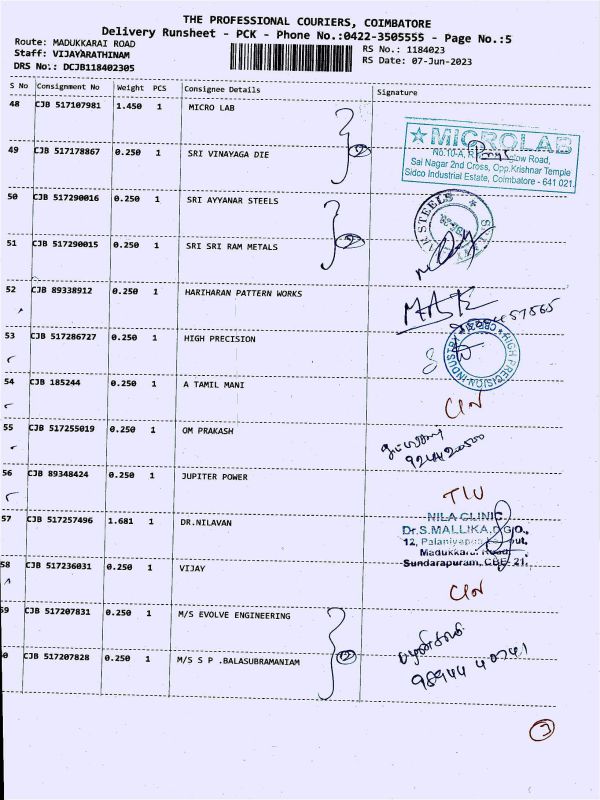 THE PROFESSIONAL COURIERS, COIMBATORE
Delivery Runsheet - PCK - Phone No.:0422-3505555 - Page No.:5
Route: MADUKKARAI ROAD
RS No.: 1184023
Staff: VIJAYARATHINAM
RS Date: 07-Jun-2023
DRS No.: DCJB118402305
S No Consignment No Weight PCS Consignee Details Signature
48 CJB 517107981 1.450 1 MICRO LAB
MICROLAB
No.10-A, Road,
Sai Nagar 2nd Cross, Opp.Krishnar Temple
Sidco Industrial Estate, Coimbatore - 641 021.
49 CJB 517178867 0.250 1 SRI VINAYAGA DIE 2
50 CJB 517290016 0.250 1 SRI AYYANAR STEELS
STEELS
51 CJB 517290015 0.250 1 SRI SRI RAM METALS 2
52 CJB 89338912 0.250 1 HARIHARAN PATTERN WORKS
53 CJB 517286727 0.250 1 HIGH PRECISION
HIGH PRECISION INDUSTR
54 CJB 185244 0.250 1 A TAMIL MANI
55 CJB 517255019 0.250 1 OM PRAKASH
56 CJB 89348424 0.250 1 JUPITER POWER
57 CJB 517257496 1.681 1 DR.NILAVAN
NILA CLINIC
Dr.S.MALLIKA,D.G.O.,
12,
Madukkarai Road,
Sundarapuram, CBE- 21.
58 CJB 517236031 0.250 1 VIJAY
59 CJB 517207831 0.250 1 M/S EVOLVE ENGINEERING
0 CJB 517207828 0.250 1 M/S S P .BALASUBRAMANIAM 2
98944 40741